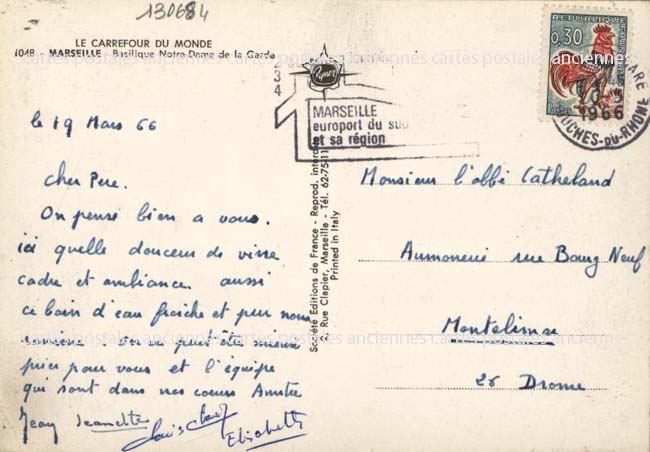 130684
LE CARREFOUR DU MONDE
1048 - MARSEILLE - Basilique Notre-Dame de la Garde
le 19 Mars 66
Cher Pere.
On pense bien a vous.
ici quelle douceur de vivre
cadre et ambiance. aussi
ce bain d'eau fraiche et pur nous
On va peut être mieux
prier pour vous et l'équipe
qui sont dans nos coeurs Amitié
Jean Jeannette
Elisabeth
Société Editions de France - Reprod. interdite
Rue Clapier, Marseille - Tél. 62-75-11
Printed in Italy
234
MARSEILLE
europort du sud
et sa région
REPUBLIQUE
0,30
GARE
1966
BOUCHES-DU-RHONE
Monsieur l'abbé Catheland
Aumonerie rue Bourg Neuf
Montelimar
26 Drome
cartes postales anciennes cartes postales anciennes cartes postales anciennes
cartes postales anciennes cartes postales anciennes cartes postales anciennes